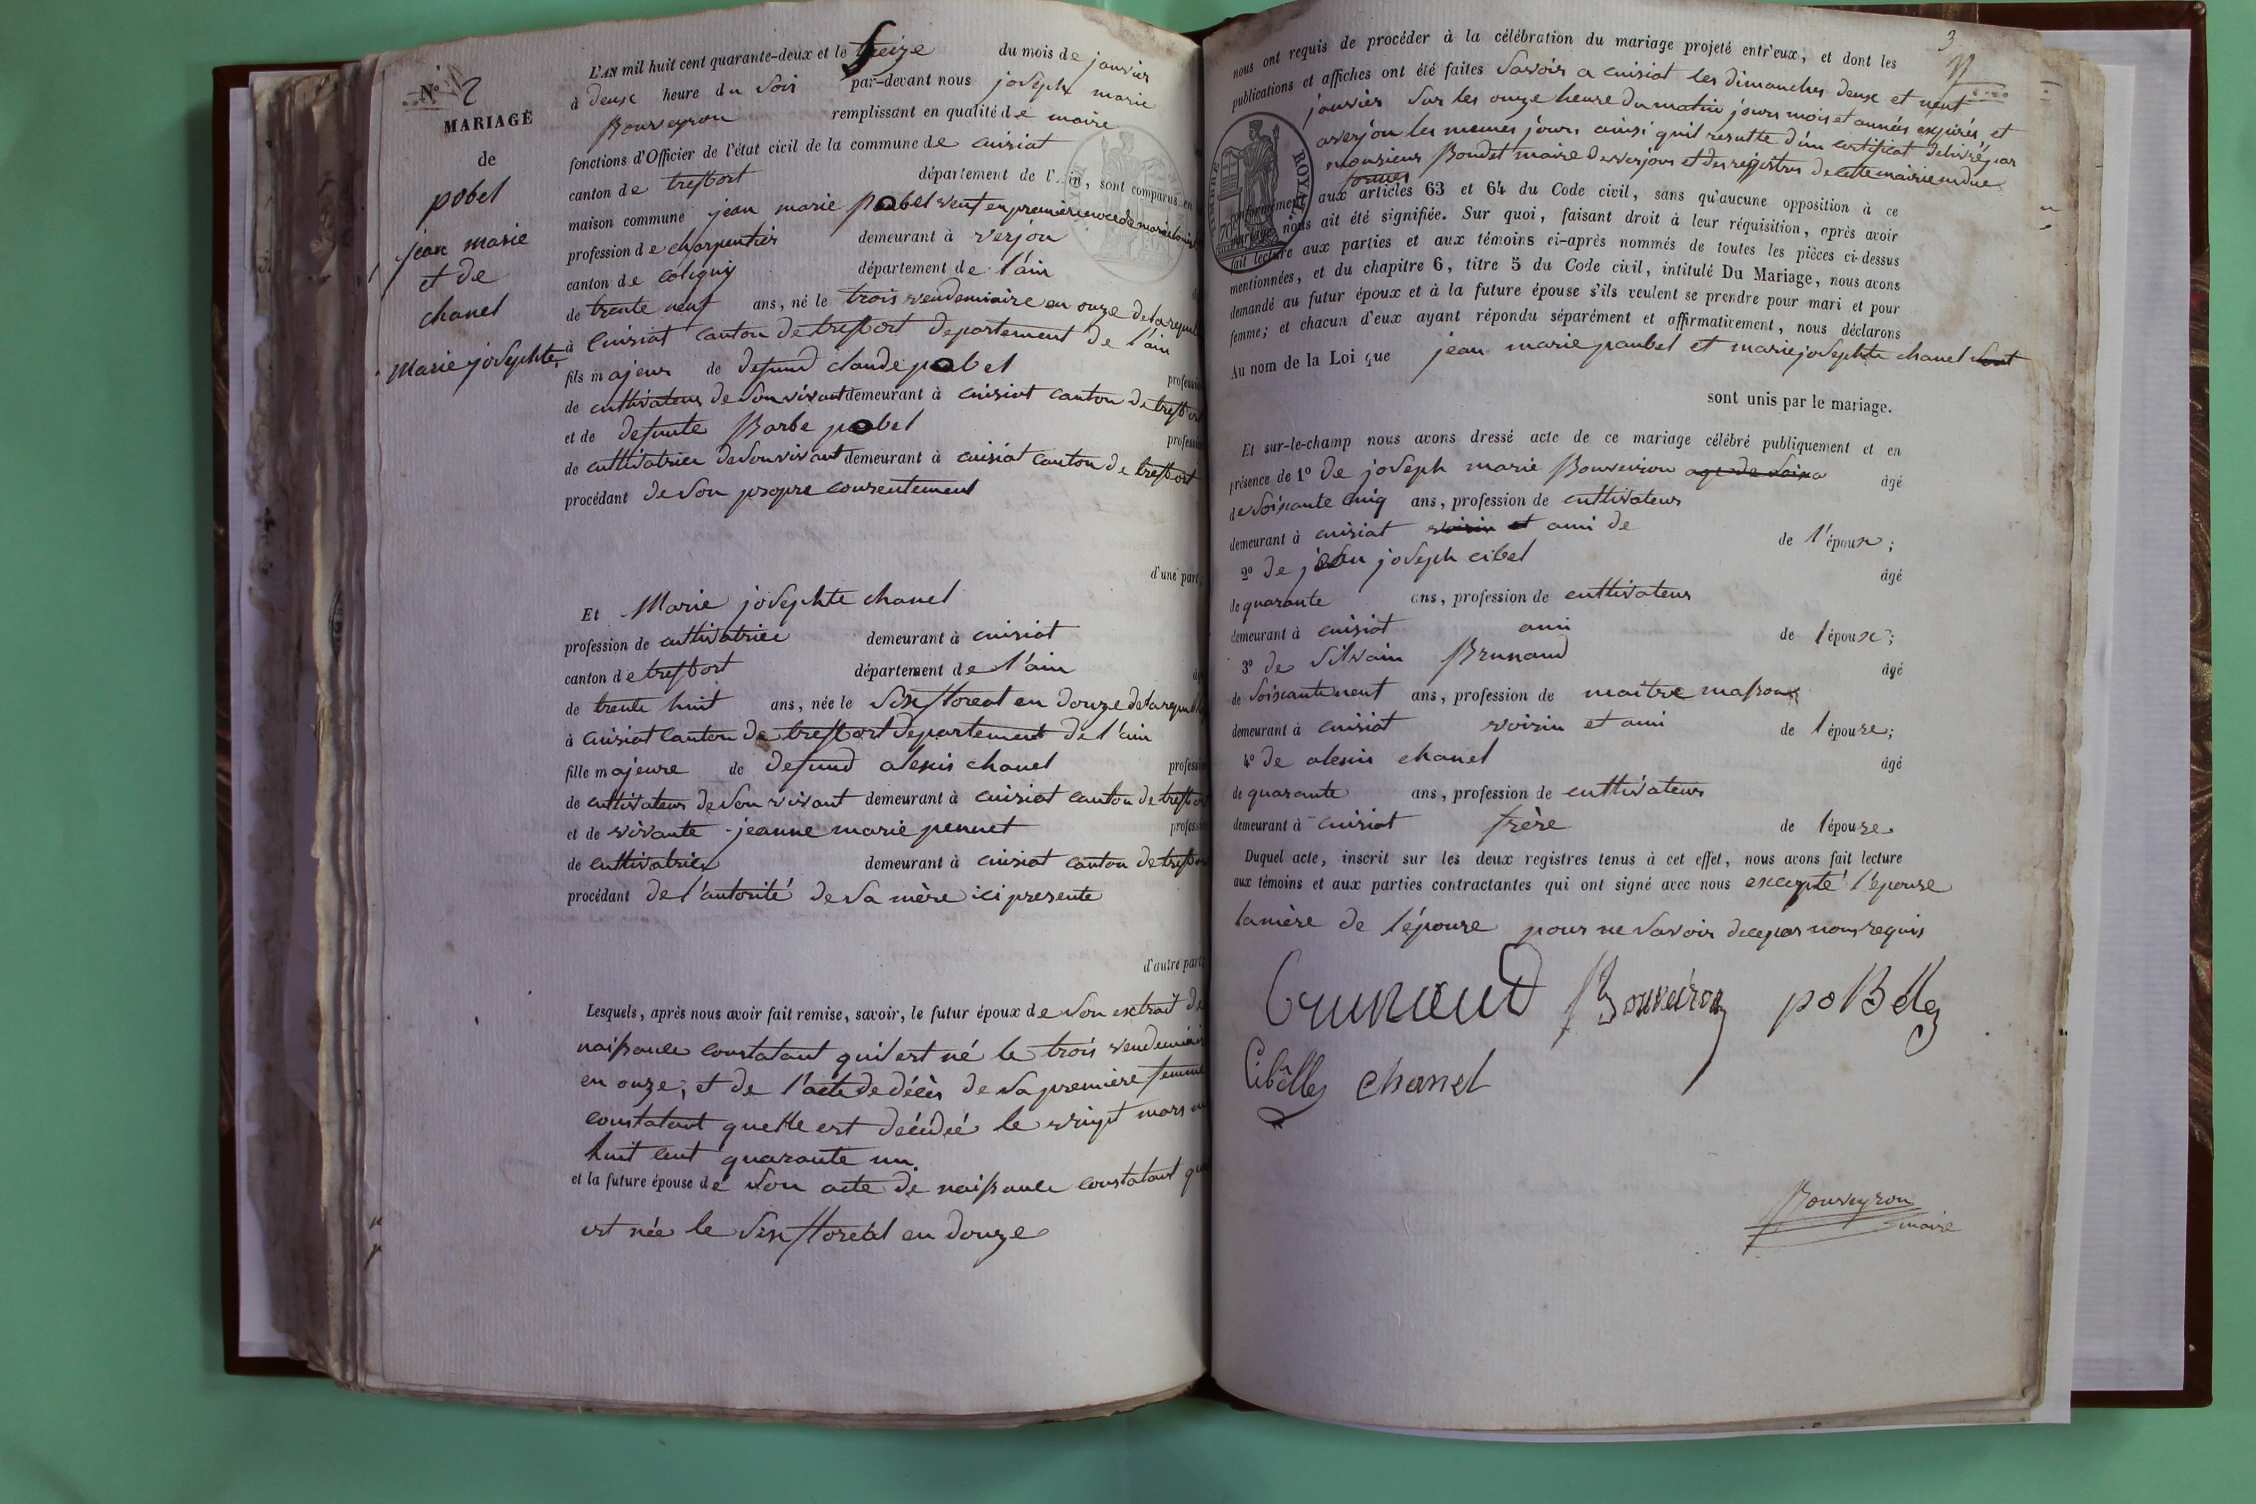 N° 2
MARIAGE
de
pobel
jean marie
et de
chanel
Marie josephte
L'AN mil huit cent quarante-deux et le treize du mois de janvier
à deux heure du soir par-devant nous joseph marie
Bouveyron remplissant en qualité de maire
fonctions d'Officier de l'état civil de la commune de cuisiat
canton de treffort département de l'Ain, sont comparus en
maison commune jean marie pobel veuf en premiere noce de marie
profession de charpentier demeurant à verjon
canton de coligny département de l'ain
de trente neuf ans, né le trois vendemiaire an onze de la
à Cuisiat canton de treffort departement de l'ain
fils majeur de defund claude pobel profession
de cultivateur de son vivant demeurant à cuisiat canton de treffort
et de defunte Barbe pobel profession
de cultivatrice de son vivant demeurant à cuisiat canton de treffort
procédant de son propre consentement
d'une part;
Et Marie josephte chanel
profession de cultivatrice demeurant à cuisiat
canton de treffort département de l'ain
de trente huit ans, née le six floreal en douze de la
à cuisiat canton de treffort departement de l'ain
fille majeure de defund alexis chanel profession
de cultivateur de son vivant demeurant à cuisiat canton de treffort
et de vivante jeanne marie pennet profession
de cultivatrice demeurant à cuisiat canton de treffort
procédant de l'autorité de sa mère ici presente
d'autre part;
Lesquels, après nous avoir fait remise, savoir, le futur époux de son extrait de
naissance constatant qu'il est né le trois vendemiaire
en onze; et de l'acte de décès de sa première femme
constatant quelle est décédée le vingt mars
huit cent quarante un
et la future épouse de son acte de naissance constatant
est née le six floréal en douze
3
nous ont requis de procéder à la célébration du mariage projeté entr'eux, et dont les
publications et affiches ont été faites savoir a cuisiat les dimanches deux et neuf
janvier sur les onze heure du matin jours mois et année expirés et
a verjon les memes jours ainsi qu'il resulte d'un certificat delivré par
monsieur Boudet maire de verjon et des registres de cette mairie
conformément aux articles 63 et 64 du Code civil, sans qu'aucune opposition à ce
mariage nous ait été signifiée. Sur quoi, faisant droit à leur réquisition, après avoir
fait lecture aux parties et aux témoins ci-après nommés de toutes les pièces ci-dessus
mentionnées, et du chapitre 6, titre 5 du Code civil, intitulé Du Mariage, nous avons
demandé au futur époux et à la future épouse s'ils veulent se prendre pour mari et pour
femme; et chacun d'eux ayant répondu séparément et affirmativement, nous déclarons
Au nom de la Loi que jean marie paubel et marie josephte chanel sont
sont unis par le mariage.
Et sur-le-champ nous avons dressé acte de ce mariage célébré publiquement et en
présence de 1° de joseph marie Bouveiron age de soixa âgé
de soixante cinq ans, profession de cultivateur
demeurant à cuisiat voisin et ami de de l'époux;
2° de jean joseph cibel âgé
de quarante ans, profession de cultivateur
demeurant à cuisiat ami de l'époux;
3° de silvain Brunaud âgé
de soixante neuf ans, profession de maitre masson
demeurant à cuisiat voisin et ami de l'épouse;
4° de alexis chanel âgé
de quarante ans, profession de cultivateur
demeurant à cuisiat frère de l'épouse
Duquel acte, inscrit sur les deux registres tenus à cet effet, nous avons fait lecture
aux témoins et aux parties contractantes qui ont signé avec nous excepté l'épouse
la mère de l'épouse pour ne savoir de ce par nous requis
Brunaud Bouveiron poBel
Cibelle chanel
Bouveyron
maire